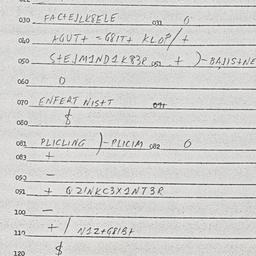 030 FACTEJLKBELE 031 6
040 AGUT+ =GBIT+ KLOP/+
050 S+EJM1ND1K83R 051 + )-BAJIS+NE
060 0
070 ENFERT NIS+T 071
080 $
081 PLICLING )-PLICIM 082 6
083 +
092 -
091 + GZINKC3X1NT3R
100 -
110 +/ N1Z+G8IB+
120 $